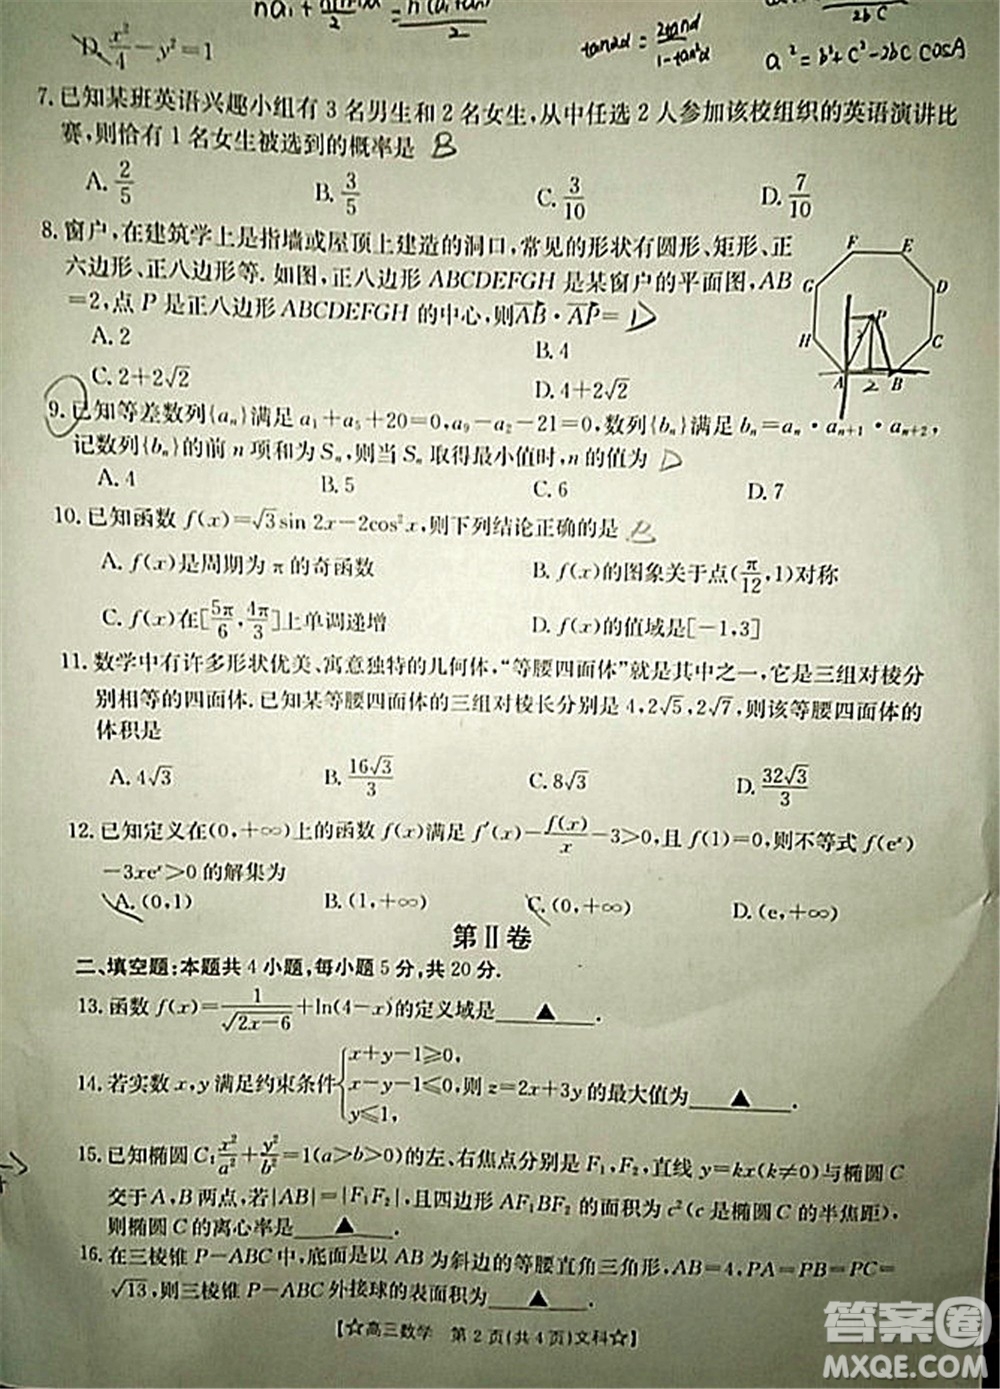 tan2α=2tanα/(1-tan²α)
2bc
a²=b²+c²-2bc cosA
D. x²/4-y²=1
7. 已知某班英语兴趣小组有 3 名男生和 2 名女生,从中任选 2 人参加该校组织的英语演讲比
赛,则恰有 1 名女生被选到的概率是 B
A. 2/5 B. 3/5 C. 3/10 D. 7/10
8. 窗户,在建筑学上是指墙或屋顶上建造的洞口,常见的形状有圆形、矩形、正
六边形、正八边形等. 如图,正八边形 ABCDEFGH 是某窗户的平面图,AB
=2,点 P 是正八边形 ABCDEFGH 的中心,则AB·AP=
A. 2 B. 4
C. 2+2√2 D. 4+2√2
F E
G D
P
H C
A 2 B
9. 已知等差数列{aₙ}满足 a₁+a₅+20=0,a₉-a₂-21=0,数列{bₙ}满足 bₙ=aₙ·aₙ₊₁·aₙ₊₂,
记数列{bₙ}的前 n 项和为 Sₙ,则当 Sₙ 取得最小值时,n 的值为 D
A. 4 B. 5 C. 6 D. 7
10. 已知函数 f(x)=√3sin 2x-2cos²x,则下列结论正确的是 B
A. f(x)是周期为 π 的奇函数 B. f(x)的图象关于点(π/12,1)对称
C. f(x)在[5π/6,4π/3]上单调递增 D. f(x)的值域是[-1,3]
11. 数学中有许多形状优美、寓意独特的几何体,“等腰四面体”就是其中之一,它是三组对棱分
别相等的四面体. 已知某等腰四面体的三组对棱长分别是 4,2√5,2√7,则该等腰四面体的
体积是
A. 4√3 B. 16√3/3 C. 8√3 D. 32√3/3
12. 已知定义在(0,+∞)上的函数 f(x)满足 f′(x)-f(x)/x-3>0,且 f(1)=0,则不等式 f(eˣ)
-3xeˣ>0 的解集为
A. (0,1) B. (1,+∞) C. (0,+∞) D. (e,+∞)
第Ⅱ卷
二、填空题:本题共 4 小题,每小题 5 分,共 20 分.
13. 函数 f(x)=1/√(2x-6)+ln(4-x)的定义域是 ▲ .
14. 若实数 x,y 满足约束条件{x+y-1≥0, x-y-1≤0, y≤1, 则 z=2x+3y 的最大值为 ▲ .
15. 已知椭圆 C: x²/a²+y²/b²=1(a>b>0)的左、右焦点分别是 F₁,F₂,直线 y=kx(k≠0)与椭圆 C
交于 A,B 两点,若|AB|=|F₁F₂|,且四边形 AF₁BF₂ 的面积为 c²(c 是椭圆 C 的半焦距),
则椭圆 C 的离心率是 ▲ .
16. 在三棱锥 P-ABC 中,底面是以 AB 为斜边的等腰直角三角形,AB=4,PA=PB=PC=
√13,则三棱锥 P-ABC 外接球的表面积为 ▲ .
【☆高三数学 第 2 页(共 4 页)文科☆】
答案圈
MXQE.COM